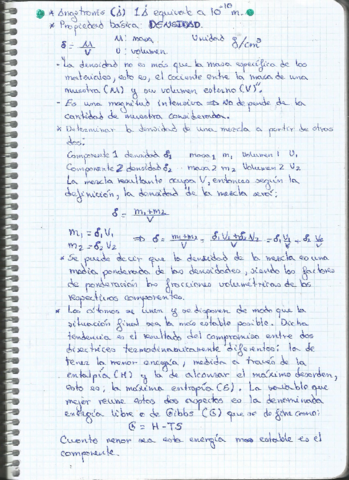 * Angstroms (Å) 1Å equivale a 10⁻¹⁰ m.
* Propiedad básica DENSIDAD.
δ = M/V M: masa Unidad g/cm³
V: volumen
- La densidad no es más que la masa específica de los
materiales, esto es, el cociente entre la masa de una
muestra (M) y su volumen externo (V)".
- Es una magnitud intensiva ⇒ No depende de la
cantidad de muestra considerada.
* Determinar la densidad de una mezcla a partir de otras
dos:
Componente 1 densidad δ₁ masa m₁ Volumen 1 V₁
Componente 2 densidad δ₂ masa 2 m₂ Volumen 2 V₂
La mezcla resultante ocupa V, entonces según la
definición, la densidad de la mezcla será:
δ = m₁+m₂/V
m₁ = δ₁V₁
m₂ = δ₂V₂ ⇒ δ = m₁+m₂/V = δ₁V₁+δ₂V₂/V = δ₁V₁/V + δ₂V₂/V
* Se puede decir que la densidad de la mezcla es una
media ponderada de las densidades, siendo los factores
de ponderación las fracciones volumétricas de los
respectivos componentes.
* Los átomos se unen y se disponen de modo que la
situación final sea la más estable posible. Dicha
tendencia es el resultado del compromiso entre dos
directrices termodinámicamente diferentes: la de
tener la menor energía, medida a través de la
entalpía (H) y la de alcanzar el máximo desorden,
esto es, la máxima entropía (S). La variable que
mejor reune estos dos aspectos es la denominada
energía libre o de Gibbs (G) que se define como:
G = H - TS
Cuanto menor sea esta energía mas estable es el
componente.